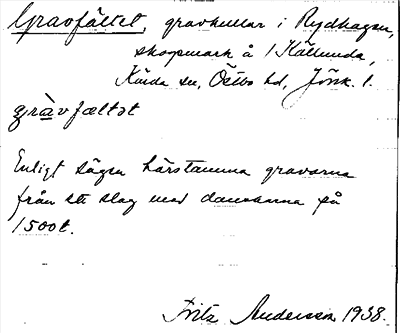 Gravfältet, gravkullar i Rydhagen,
skogsmark å 1 Källunda,
Kävsjö sn, Östbo hd, Jönk. l.
gràvfæltət
Enligt sägen härstamma gravarna
från ett slag med danskarna på
1500t.
Fritz Andersson 1938.